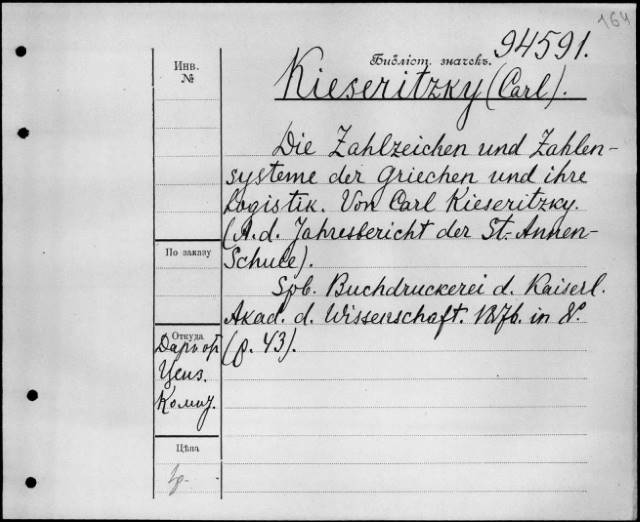 164
94591.
Библіот. значекъ.
Kieseritzky (Carl).
Инв.
№
Die Zahlzeichen und Zahlen-
systeme der Griechen und ihre
Logistik. Von Carl Kieseritzky.
(A. d. Jahresbericht der St.-Annen-
Schule).
По заказу
Spb. Buchdruckerei d. Kaiserl.
Akad. d. Wissenschaft. 1876. in 8°.
(p. 43).
Откуда
Даръ от
Ценз.
Комит.
Цѣна